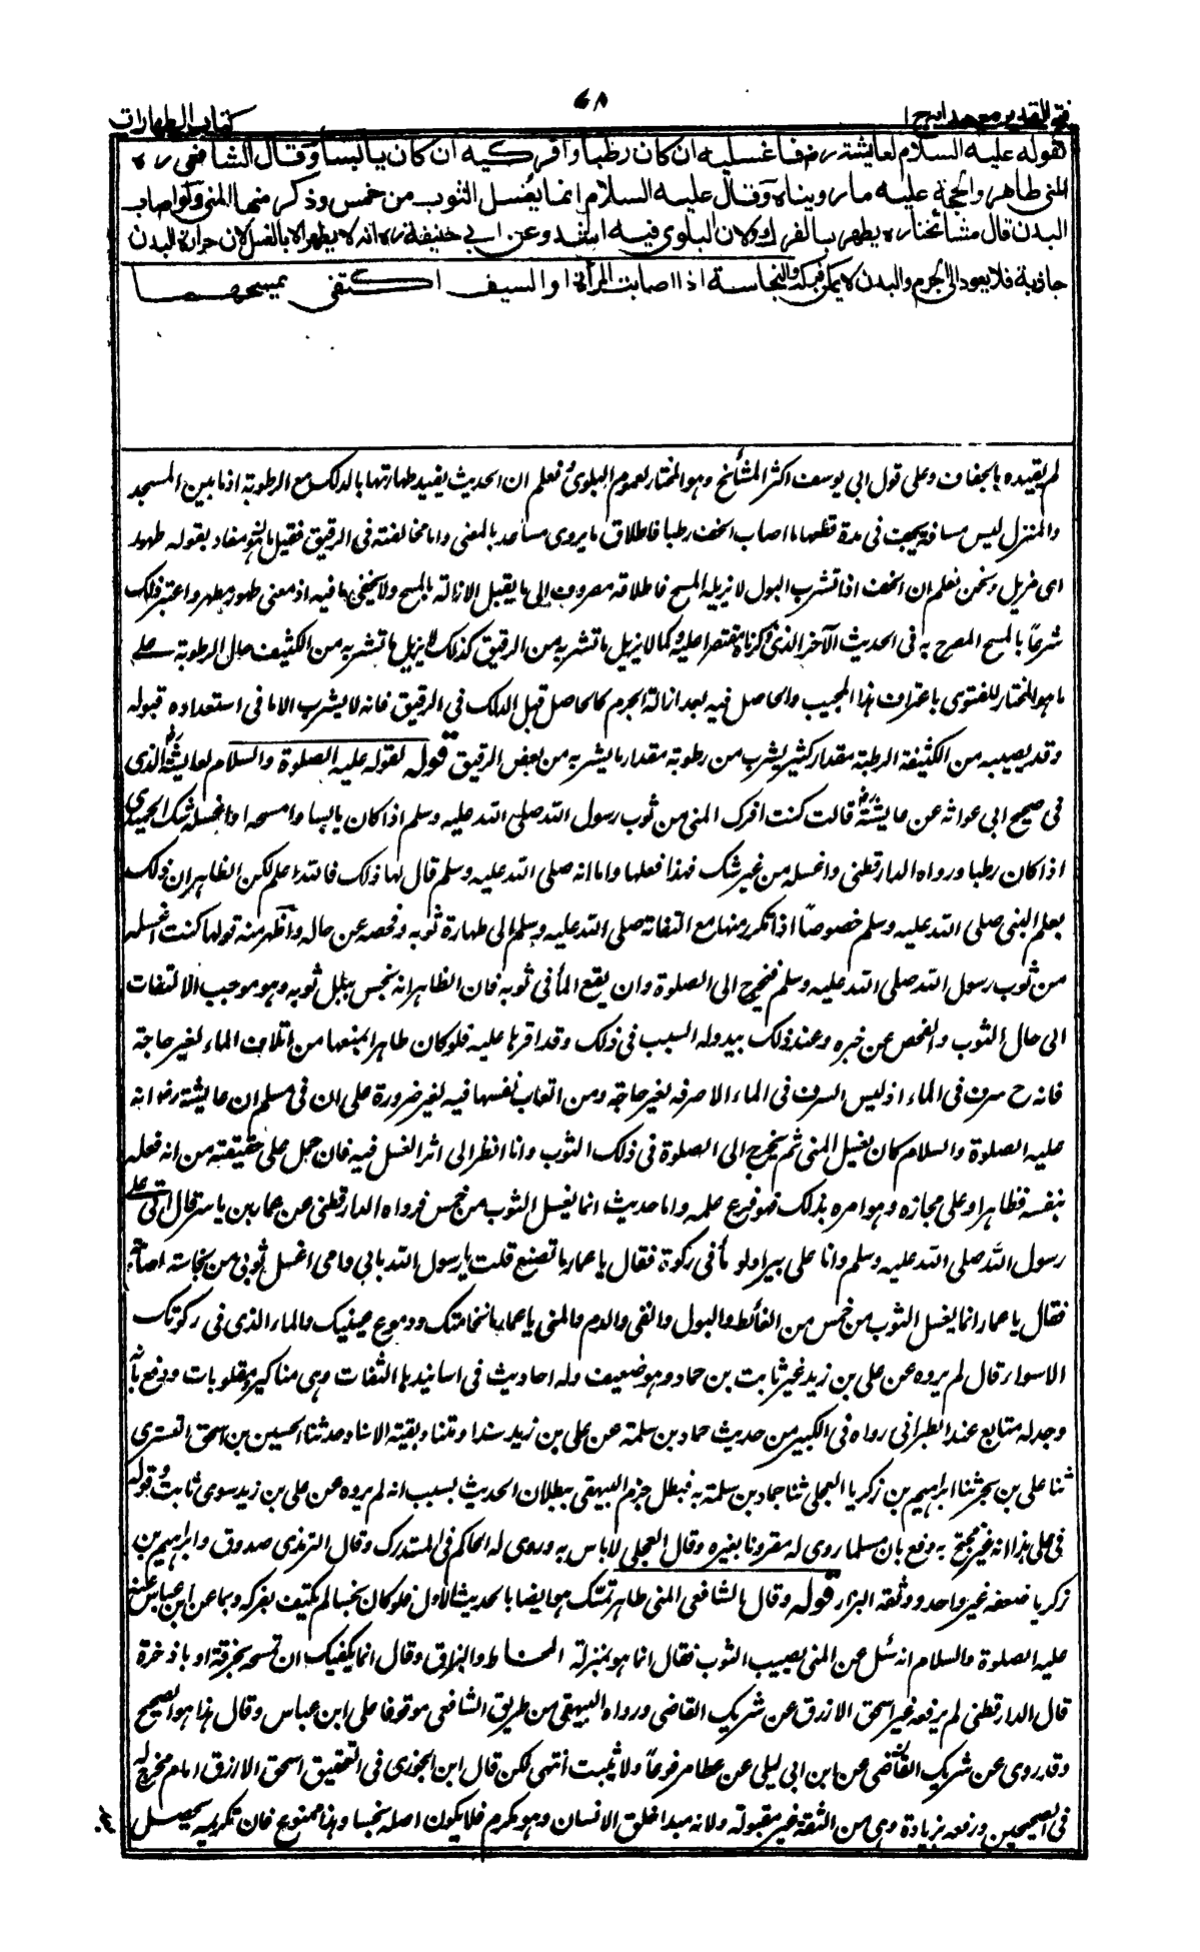 فتح القدير مع هداية ج ١
٦٨
كتاب الطهارات
لقوله عليه السلام لعايشة رض فاغسليه ان كان رطبا وافركيه ان كان يابسا وقال الشافعى ره
المنى طاهر والحجة عليه ما رويناه وقال عليه السلام انما يغسل الثوب من خمس وذكر منها المنى ولو اصاب
البدن قال مشائخنا ره يطهر بالفرك لان البلوى فيه اشد وعن ابى حنيفة ره انه لا يطهر الا بالغسل لان حرارة البدن
جاذبة فلا يعود الى الجرم والبدن لا يمكن فركه والنجاسة اذا اصابت المرآة او السيف اكتفى بمسحهما
لم يقيده بالجفاف وعلى قول ابى يوسف اكثر المشائخ وهو المختار لعموم البلوى فعلم ان الحديث يفيد طهارتها بالدلك مع الرطوبة اذ ما بين المسجد
والمنزل ليس مسافة يجف فى مدة قطعها ما اصاب الخف رطبا فاطلاق ما يروى مساعد بالمعنى واما مخالفته فى الرقيق فقيل هو مفاد بقوله طهور
اى مزيل ونحن نعلم ان الخف اذا تشرب البول لا يزيله المسح فاطلاقه مصروف الى ما يقبل الازالة بالمسح ولا يخفى ما فيه اذ معنى طهور مطهر واعتبر ذلك
شرعًا بالمسح المصرح به فى الحديث الآخر الذى ذكرناه مقتصرا عليه وكما لا يزيل ما تشربه من الرقيق كذلك لا يزيل ما تشربه من الكثيف حال الرطوبة على
ما هو المختار للفتوى باعتراف هذا المجيب والحاصل فيه بعد ازالة الجرم كالحاصل قبل الدلك فى الرقيق فانه لا يشرب الا ما فى استعداده قبوله
وقد يصيبه من الكثيفة الرطبة مقدار كثير يشرب من رطوبة مقدار ما يشربه من بعض الرقيق قوله لقوله عليه الصلوة والسلام لعايشة رض الذى
فى صحيح ابى عوانة عن عايشة رض قالت كنت افرك المنى من ثوب رسول الله صلى الله عليه وسلم اذا كان يابسا وامسحه او اغسله شك الحميدى
اذا كان رطبا ورواه الدارقطنى واغسله من غير شك فهذا فعلها واما انه صلى الله عليه وسلم قال لها ذلك فالله اعلم لكن الظاهر ان ذلك
بعلم النبى صلى الله عليه وسلم خصوصًا اذا تكرر منها مع التفاته صلى الله عليه وسلم الى طهارة ثوبه وفحصه عن حاله واظهر منه قولها كنت اغسله
من ثوب رسول الله صلى الله عليه وسلم فيخرج الى الصلوة وان بقع الماء فى ثوبه فان الظاهر انه يحس ببلل ثوبه وهو موجب الالتفات
الى حال الثوب والفحص عن خبره وعند ذلك يبدو له السبب فى ذلك وقد اقرها عليه فلو كان طاهرا لمنعها من اتلاف الماء لغير حاجة
فانه ح سرف فى الماء اذ ليس السرف فى الماء الا صرفه لغير حاجة ومن اتعاب نفسها فيه لغير ضرورة على ان فى مسلم ان عايشة رض انه
عليه الصلوة والسلام كان يغسل المنى ثم يخرج الى الصلوة فى ذلك الثوب وانا انظر الى اثر الغسل فيه فان حمل على حقيقته من انه فعله
بنفسه فظاهر او على مجازه وهو امره بذلك فهو فرع علمه واما حديث انما يغسل الثوب من خمس فرواه الدارقطنى عن عمار بن ياسر قال اتى على
رسول الله صلى الله عليه وسلم وانا على بير ادلو ماء فى ركوة فقال يا عمار ما تصنع قلت يا رسول الله بابى وامى اغسل ثوبى من نخامة اصابته
فقال يا عمار انما يغسل الثوب من خمس من الغائط والبول والقى والدم والمنى يا عمار ما نخامتك ودموع عينيك والماء الذى فى ركوتك
الا سواء قال لم يروه عن على بن زيد غير ثابت بن حماد وهو ضعيف وله احاديث فى اسانيدها الثقات وهى مناكير ومقلوبات ودفع بانه
وجد له متابع عند الطبرانى رواه فى الكبير من حديث حماد بن سلمة عن على بن زيد سندا ومتنا وبقية الاسناد حدثنا الحسين بن اسحق التسترى
ثنا على بن بحر ثنا ابراهيم بن زكريا العجلى ثنا حماد بن سلمة به فبطل جزم البيهقى ببطلان الحديث بسبب انه لم يروه عن على بن زيد سوى ثابت وقوله
فى على هذا انه غير محتج به دفع بان مسلما روى له مقرونا بغيره وقال العجلى لا باس به وروى له الحاكم فى المستدرك وقال الترمذى صدوق وابراهيم بن
زكريا ضعفه غير واحد ووثقه البزار قوله وقال الشافعى المنى طاهر تمسك هو ايضا بالحديث الاول فلو كان نجسا لم يكتف بفركه وبما عن ابن عباس عنه
عليه الصلوة والسلام انه سئل عن المنى يصيب الثوب فقال انما هو بمنزلة المخاط والبزاق وقال انما يكفيك ان تمسحه بخرقة او باذخرة
قال الدارقطنى لم يرفعه غير اسحق الازرق عن شريك القاضى ورواه البيهقى من طريق الشافعى موقوفا على ابن عباس وقال هذا هو الصحيح
وقد روى عن شريك القاضى عن ابن ابى ليلى عن عطا مرفوعًا ولا يثبت انتهى لكن قال ابن الجوزى فى التحقيق اسحق الازرق امام مخرج له
فى الصحيحين ورفعه بزيادة وهى من الثقة غير مقبولة ولانه مبدا خلق الانسان وهو مكرم فلا يكون اصله نجسا وهذا ممنوع فان تكريمه يحصل